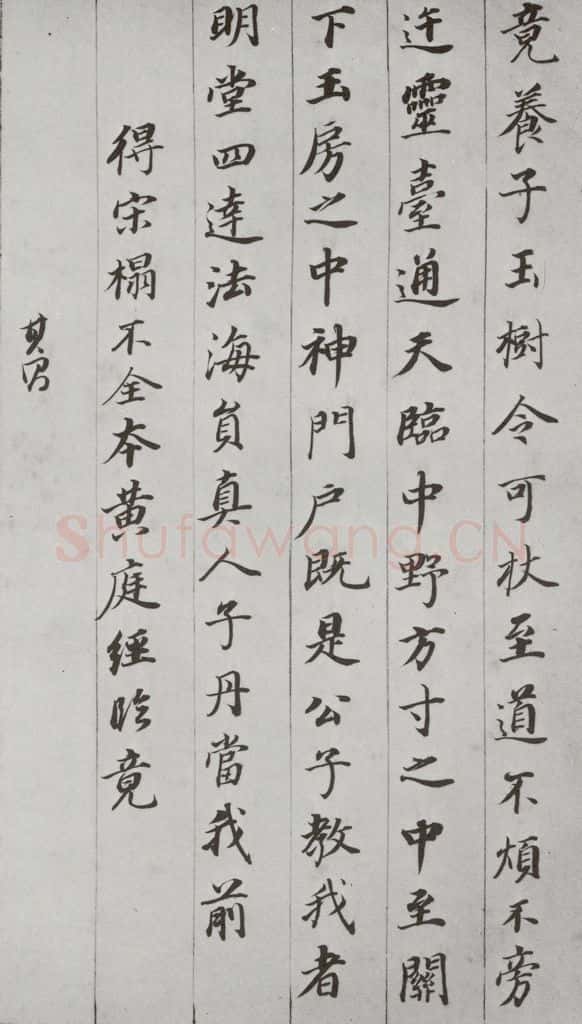 竟養子玉樹令可杖至道不煩不旁
迕靈臺通天臨中野方寸之中至關
下玉房之中神門户既是公子教我者
明堂四達法海員真人子丹當我前
得宋榻不全本黄庭經臨竟
其昌
Shufawang.CN